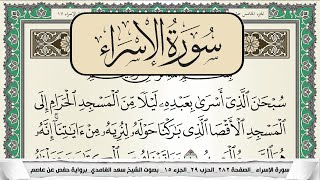 سُورَةُ الإِسْرَاءِ
سُبْحَٰنَ ٱلَّذِىٓ أَسْرَىٰ بِعَبْدِهِۦ لَيْلًا مِّنَ ٱلْمَسْجِدِ ٱلْحَرَامِ إِلَى
ٱلْمَسْجِدِ ٱلْأَقْصَا ٱلَّذِى بَٰرَكْنَا حَوْلَهُۥ لِنُرِيَهُۥ مِنْ ءَايَٰتِنَآ ۚ إِنَّهُۥ
سورة الإسراء _ الصفحة ٢٨٢ _ الحزب ٢٩ _ الجزء ١٥ _ بصوت الشيخ سعد الغامدي _ برواية حفص عن عاصم